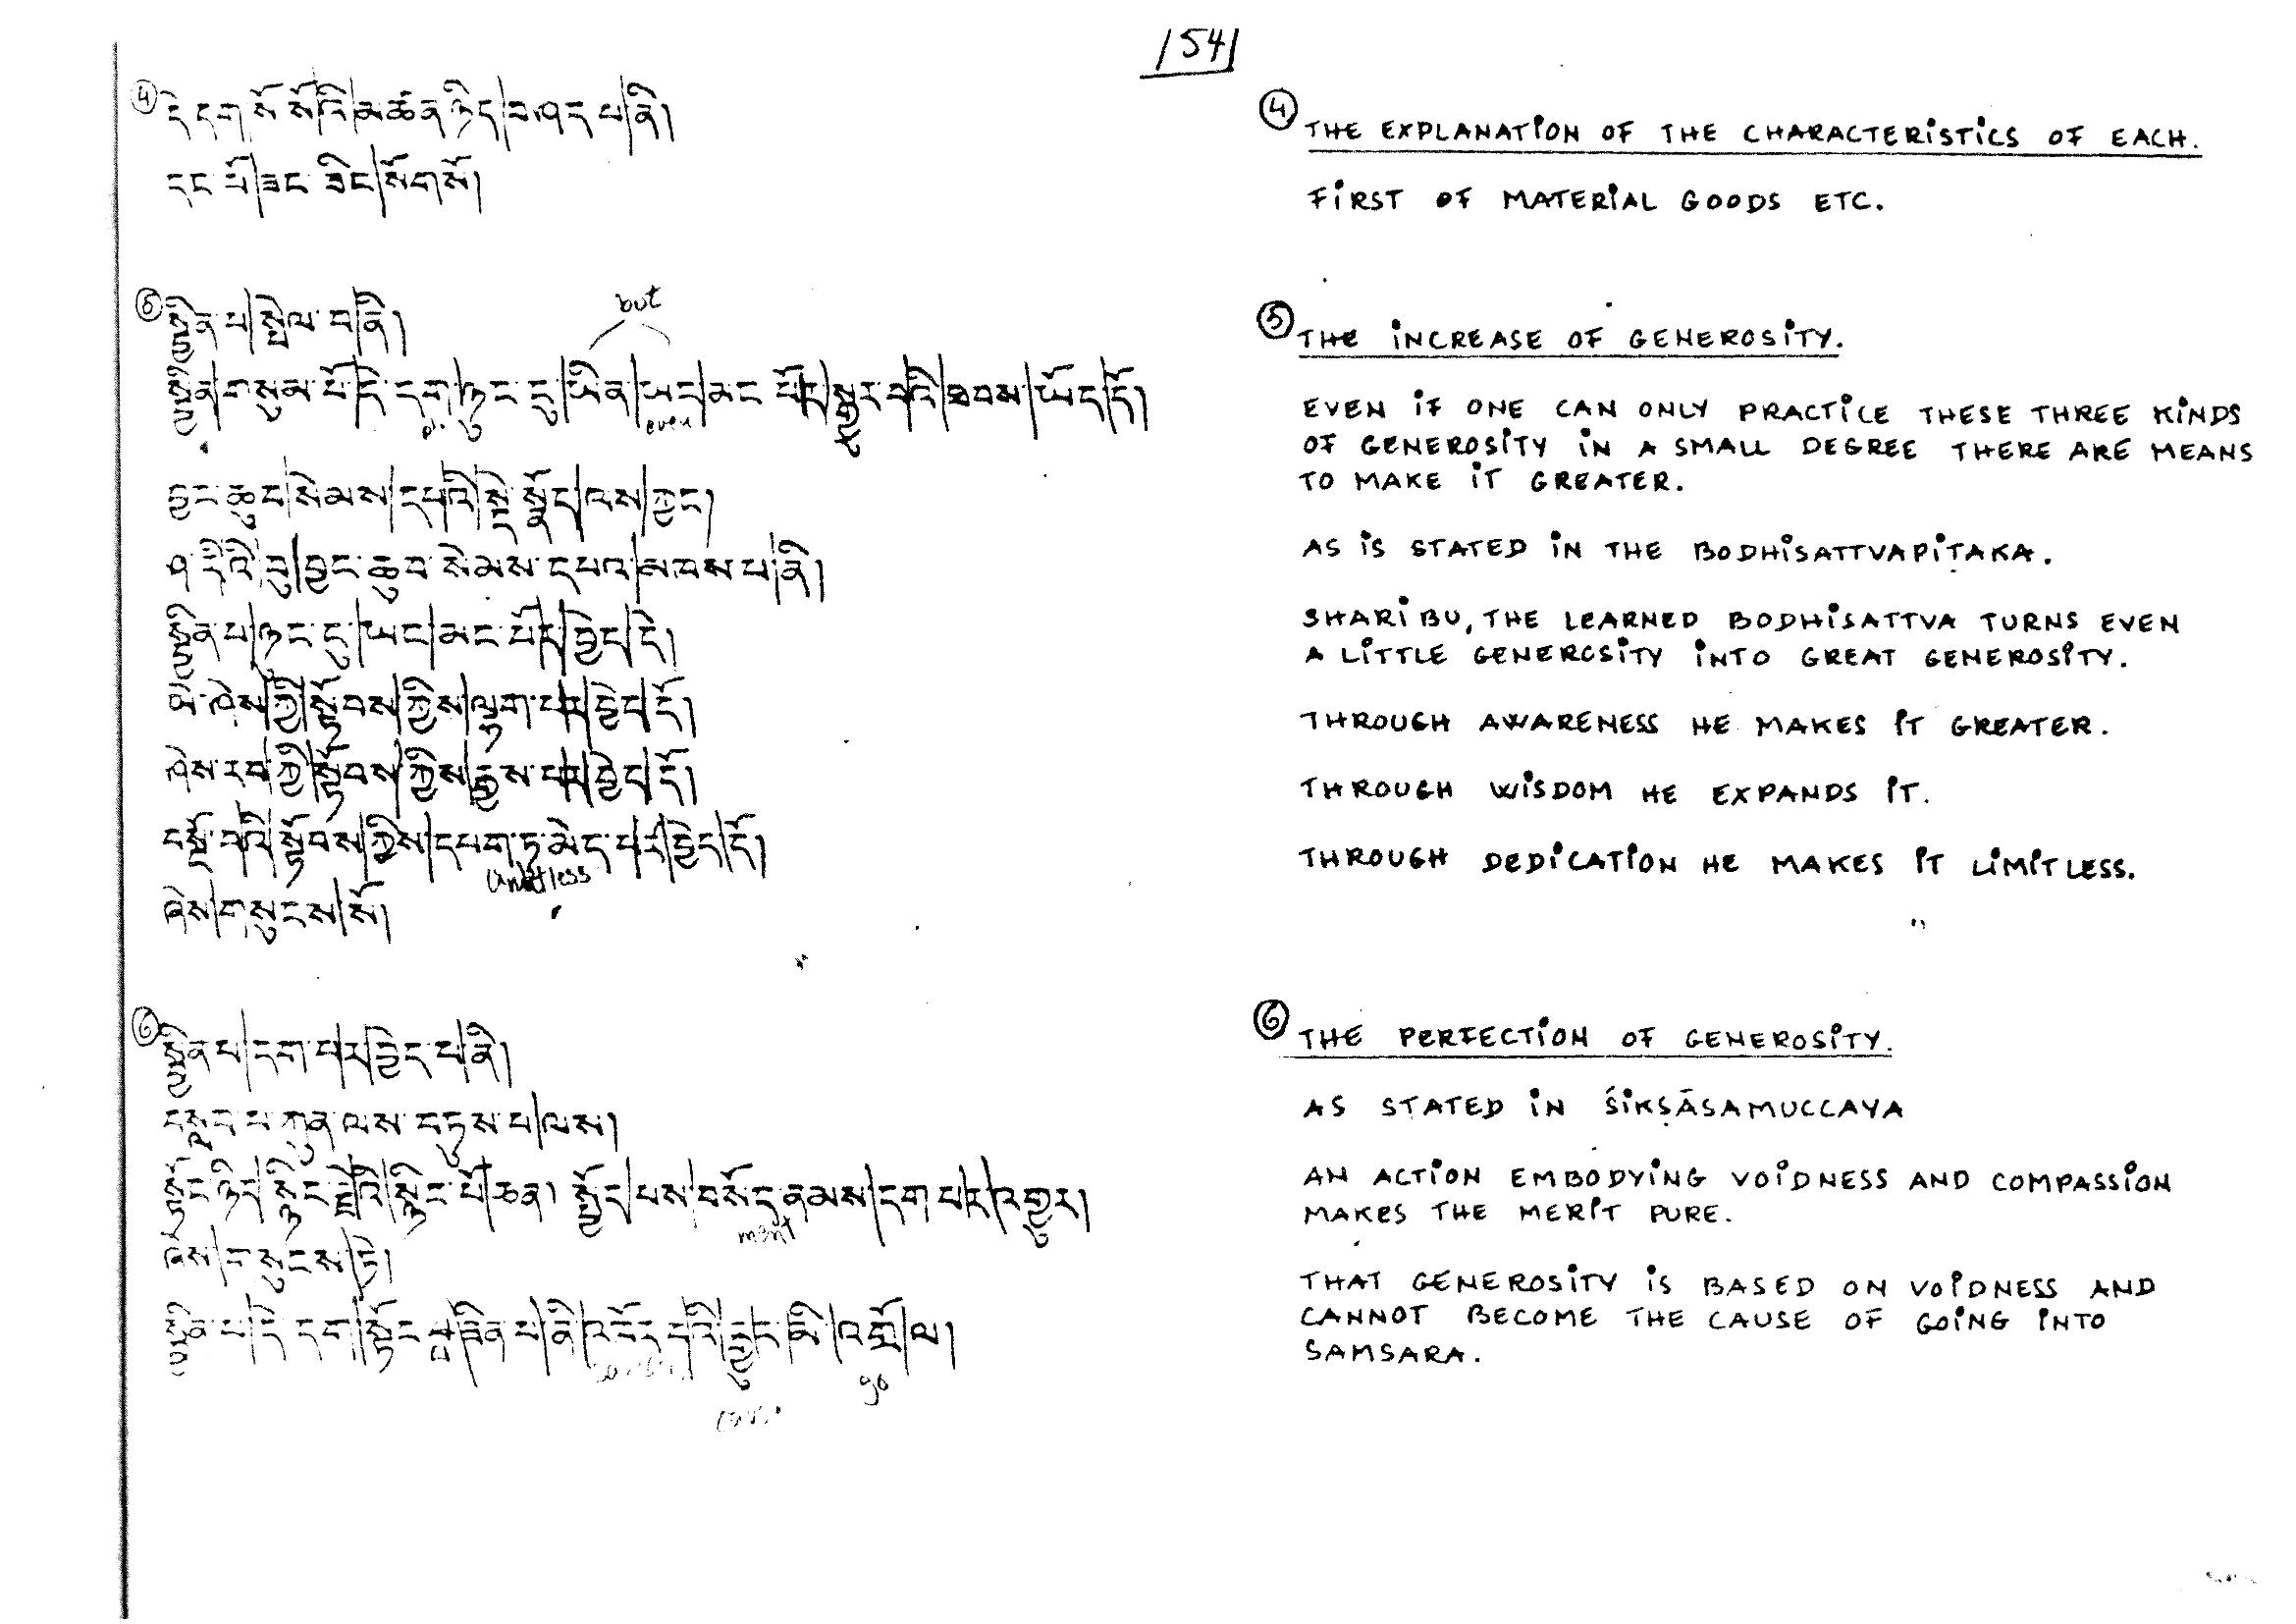 154
④ དེ་དག་སོ་སོའི་མཚན་ཉིད་བཤད་པ་ནི།
དང་པོ་ཟང་ཟིང་སོགས་སོ།
⑤ སྦྱིན་པ་སྤེལ་བ་ནི།
but
སྦྱིན་གསུམ་པོ་དེ་དག་ཉུང་ངུ་ཡིན་ཡང་མང་པོར་སྒྱུར་བའི་ཐབས་ཡོད་དོ།
even
བྱང་ཆུབ་སེམས་དཔའི་སྡེ་སྣོད་ལས་ཀྱང་།
ཤ་རིའི་བུ་བྱང་ཆུབ་སེམས་དཔའ་མཁས་པ་ནི།
སྦྱིན་པ་ཉུང་ངུ་ཡང་མང་པོར་བྱེད་དེ།
ཡེ་ཤེས་ཀྱི་སྟོབས་ཀྱིས་ལྷག་པར་བྱེད་དོ།
ཤེས་རབ་ཀྱི་སྟོབས་ཀྱིས་རྒྱས་པར་བྱེད་དོ།
བསྔོ་བའི་སྟོབས་ཀྱིས་དཔག་ཏུ་མེད་པར་བྱེད་དོ།
ཞེས་གསུངས་སོ།
⑥ སྦྱིན་པ་དག་པར་བྱེད་པ་ནི།
བསླབ་པ་ཀུན་ལས་བཏུས་པ་ལས།
སྟོང་ཉིད་སྙིང་རྗེའི་སྙིང་པོ་ཅན། སྤྱོད་པས་བསོད་ནམས་དག་པར་འགྱུར།
merit
ཞེས་གསུངས་ཏེ།
སྦྱིན་པ་དེ་དག་སྟོང་པས་ཟིན་པ་ནི་འཁོར་བའི་རྒྱུར་མི་འགྲོ་ལ།
go
④ THE EXPLANATION OF THE CHARACTERISTICS OF EACH.
FIRST OF MATERIAL GOODS ETC.
⑤ THE INCREASE OF GENEROSITY.
EVEN IF ONE CAN ONLY PRACTICE THESE THREE KINDS
OF GENEROSITY IN A SMALL DEGREE THERE ARE MEANS
TO MAKE IT GREATER.
AS IS STATED IN THE BODHISATTVAPIṬAKA.
SHARIBU, THE LEARNED BODHISATTVA TURNS EVEN
A LITTLE GENEROSITY INTO GREAT GENEROSITY.
THROUGH AWARENESS HE MAKES IT GREATER.
THROUGH WISDOM HE EXPANDS IT.
THROUGH DEDICATION HE MAKES IT LIMITLESS.
⑥ THE PERFECTION OF GENEROSITY.
AS STATED IN ŚIKṢĀSAMUCCAYA
AN ACTION EMBODYING VOIDNESS AND COMPASSION
MAKES THE MERIT PURE.
THAT GENEROSITY IS BASED ON VOIDNESS AND
CANNOT BECOME THE CAUSE OF GOING INTO
SAMSARA.